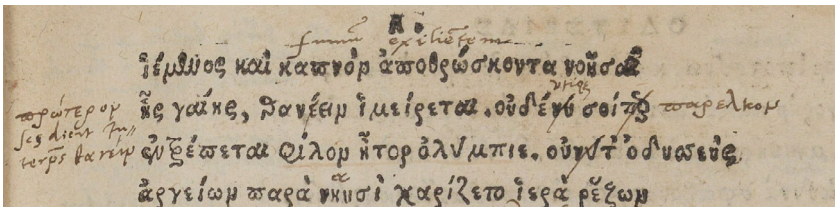 Α.
fumū exiliētem
ἱέμενος καὶ καπνὸν ἀποθρώσκοντα νοῆσαι
ἧς γαίης, θανέειν ἱμείρεται. οὐδέ νυ σοί περ παρέλκον
πρότερον
ἐντρέπεται φίλον ἦτορ ὀλύμπιε. οὐ νύ τ' ὀδυσεὺς
θανεῖν
ἀργείων παρὰ νηυσὶ χαρίζετο ἱερὰ ῥέζων